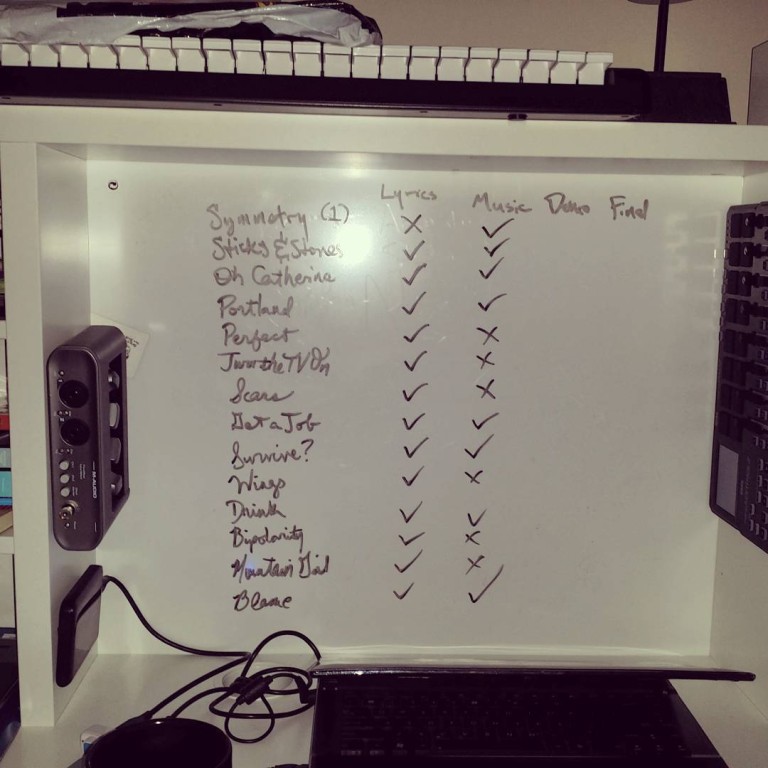 Lyrics Music Demo Final
Symmetry (1) ✗ ✓
Sticks & Stones ✓ ✓
Oh Catherine ✓ ✓
Portland ✓ ✓
Perfect ✓ ✗
Turn the TV On ✓ ✗
Scars ✓ ✗
Get a Job ✓ ✓
Survive? ✓ ✓
Wings ✓ ✗
Drink ✓ ✓
Bipolarity ✓ ✗
Mountain ✓ ✗
Blame ✓ ✓
M-AUDIO